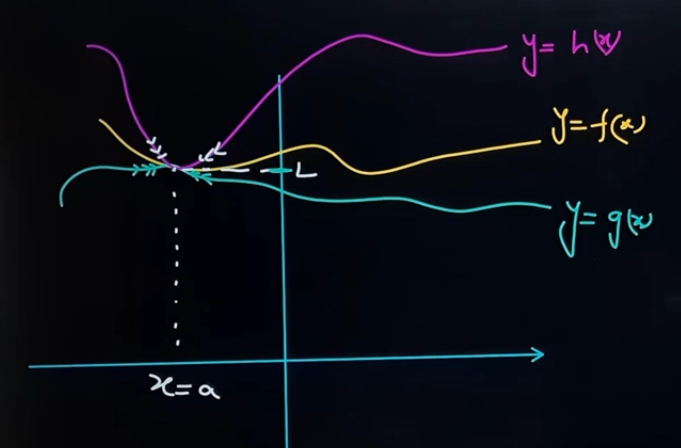 y = h(x)
y = f(x)
L
y = g(x)
x = a